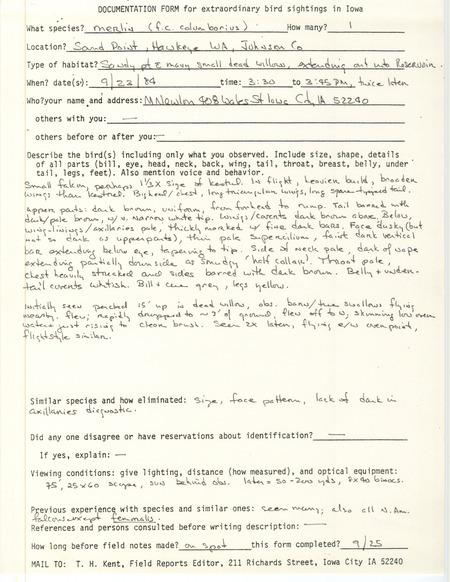 DOCUMENTATION FORM for extraordinary bird sightings in Iowa
What species? merlin (f.c. columbarius) How many? 1
Location? Sand Point, Hawkeye WA, Johnson Co
Type of habitat? Sandy pt & many small dead willow, extending out into Reservoir.
When? date(s): 9/22/84 time: 3:30 to 3:45 PM, twice later
Who? your name and address: M Newlon 408 Wales St Iowa City IA 52240
others with you: —
others before or after you: —
Describe the bird(s) including only what you observed. Include size, shape, details
of all parts (bill, eye, head, neck, back, wing, tail, throat, breast, belly, under
tail, legs, feet). Also mention voice and behavior.
Small falcon, perhaps 1⅓ X size of kestrel. In flight, heavier build, broader
wings than kestrel. Big head/chest, long triangular wings, long square-tipped tail.
Upper parts: dark brown, uniform, from forehead to rump. Tail barred with
dark/pale brown, w/ v. narrow white tip. Wings/coverts dark brown above. Below,
wing-linings/axillaries pale, thickly marked w/ fine dark bars. Face dusky (but
not so dark as upperparts), thin pale supercilium, faint dark vertical
bar extending below eye, tapering to tip. Side of neck pale, dark of nape
extending partially down side as smudgy "half collar". Throat pale,
chest heavily streaked and sides barred with dark brown. Belly & under-
tail coverts whitish. Bill & cere grey, legs yellow.
Initially seen perched 15' up in dead willow, obs. bank/tree swallows flying
nearby. flew; rapidly dropped to ~2' of ground, flew off to W, skimming low over
water just rising to clear brush. Seen 2X later, flying e/w over point,
flight style similar.
Similar species and how eliminated: size, face pattern, lack of dark in
axillaries diagnostic.
Did any one disagree or have reservations about identification? —
If yes, explain: —
Viewing conditions: give lighting, distance (how measured), and optical equipment:
75', 25x60 scope, sun behind obs. later = 50-200 yds, 8x40 binocs.
Previous experience with species and similar ones: seen many; also all N. Am.
falcons except femoralis.
References and persons consulted before writing description: —
How long before field notes made? on spot this form completed? 9/25
MAIL TO: T. H. Kent, Field Reports Editor, 211 Richards Street, Iowa City IA 52240